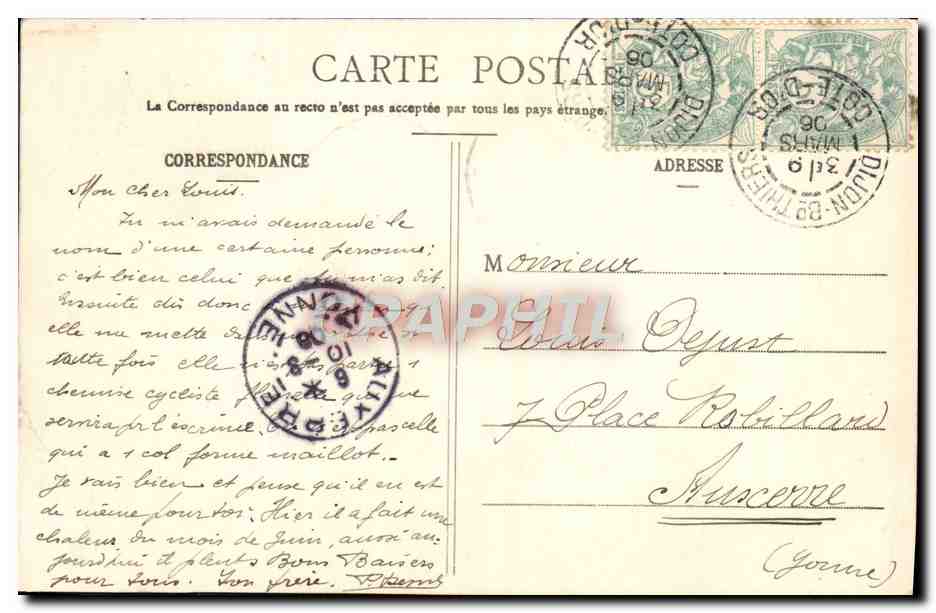 CARTE POSTA
La Correspondance au recto n'est pas acceptée par tous les pays étrange
CORRESPONDANCE
Mon cher Louis.
Tu m'avais demandé le
nom d'une certaine personne;
c'est bien celui que tu m'as dit.
Ensuite dis donc
elle me mette
cette fois elle
chemise cycliste flanelle que
servira pr l'escrime. pas celle
qui a 1 col forme maillot.-
Je vais bien et pense qu'il en est
de même pour toi. Hier il a fait une
chaleur du mois de Juin, aussi au-
jourd'hui Bons Baisers
pour tous. Ton frère.
ADRESSE
Monsieur
Louis Dejust
7 Place Robillard
Auxerre
(Yonne)
DIJON
COTE D'OR
MARS
06
DIJON-Bd THIERS
COTE D'OR
3E/9
MARS
06
AUXERRE
YONNE
CPAPHIL